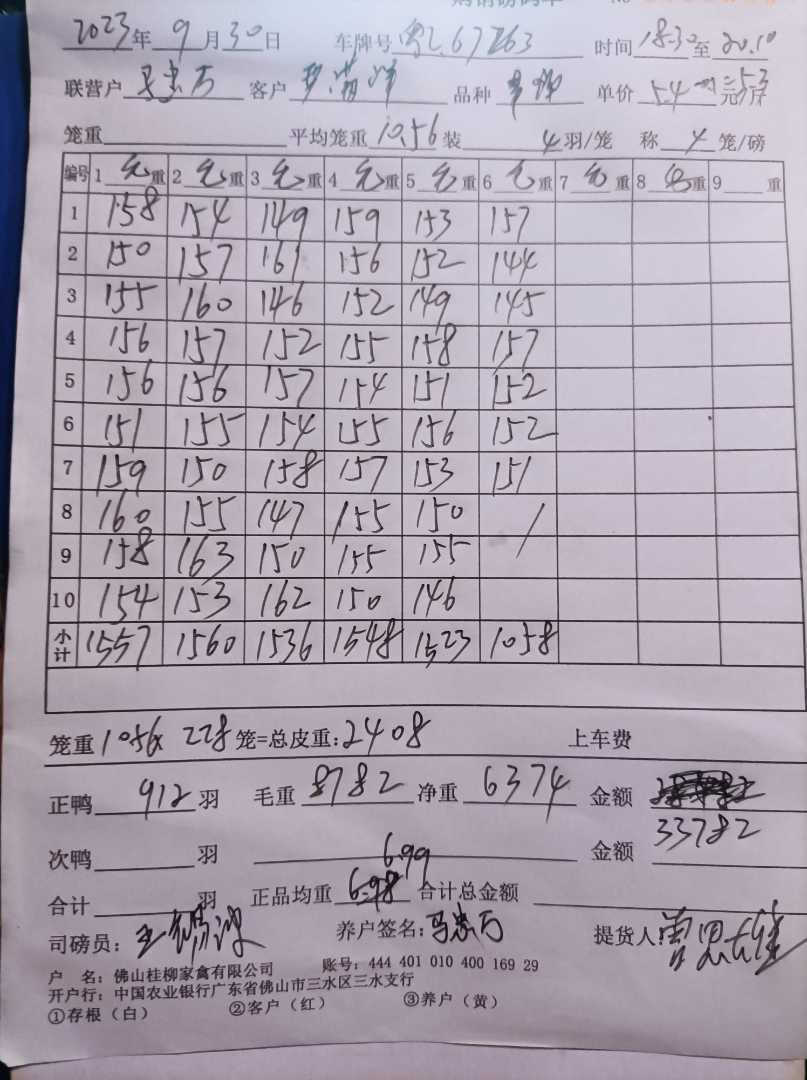 2023年 9月30日 车牌号 粤L67263 时间 18-30至20.10
联营户 客户 品种 单价 5.4 5.3 元/斤
笼重 平均笼重 10.56 装 4羽/笼 称 4 笼/磅
编号 1 毛重 2 毛重 3 毛重 4 毛重 5 毛重 6 毛重 7 毛重 8 毛重 9 重
1 158 154 149 159 153 157
2 150 157 161 156 152 144
3 155 160 146 152 149 145
4 156 157 152 155 158 157
5 156 156 157 154 151 152
6 151 155 154 155 156 152
7 159 150 158 157 153 151
8 160 155 147 155 150 /
9 158 163 150 155 155
10 154 153 162 150 146
小计 1557 1560 1536 1548 1523 1058
笼重 1056x 228 笼=总皮重: 2408 上车费
正鸭 912 羽 毛重 8782 净重 6374 金额
33782
次鸭 羽 6.99 金额
合计 羽 正品均重 6.98 合计总金额
司磅员: 养户签名: 提货人:
户 名: 佛山桂柳家禽有限公司 账号: 444 401 010 400 169 29
开户行: 中国农业银行广东省佛山市三水区三水支行
①存根(白) ②客户(红) ③养户(黄)